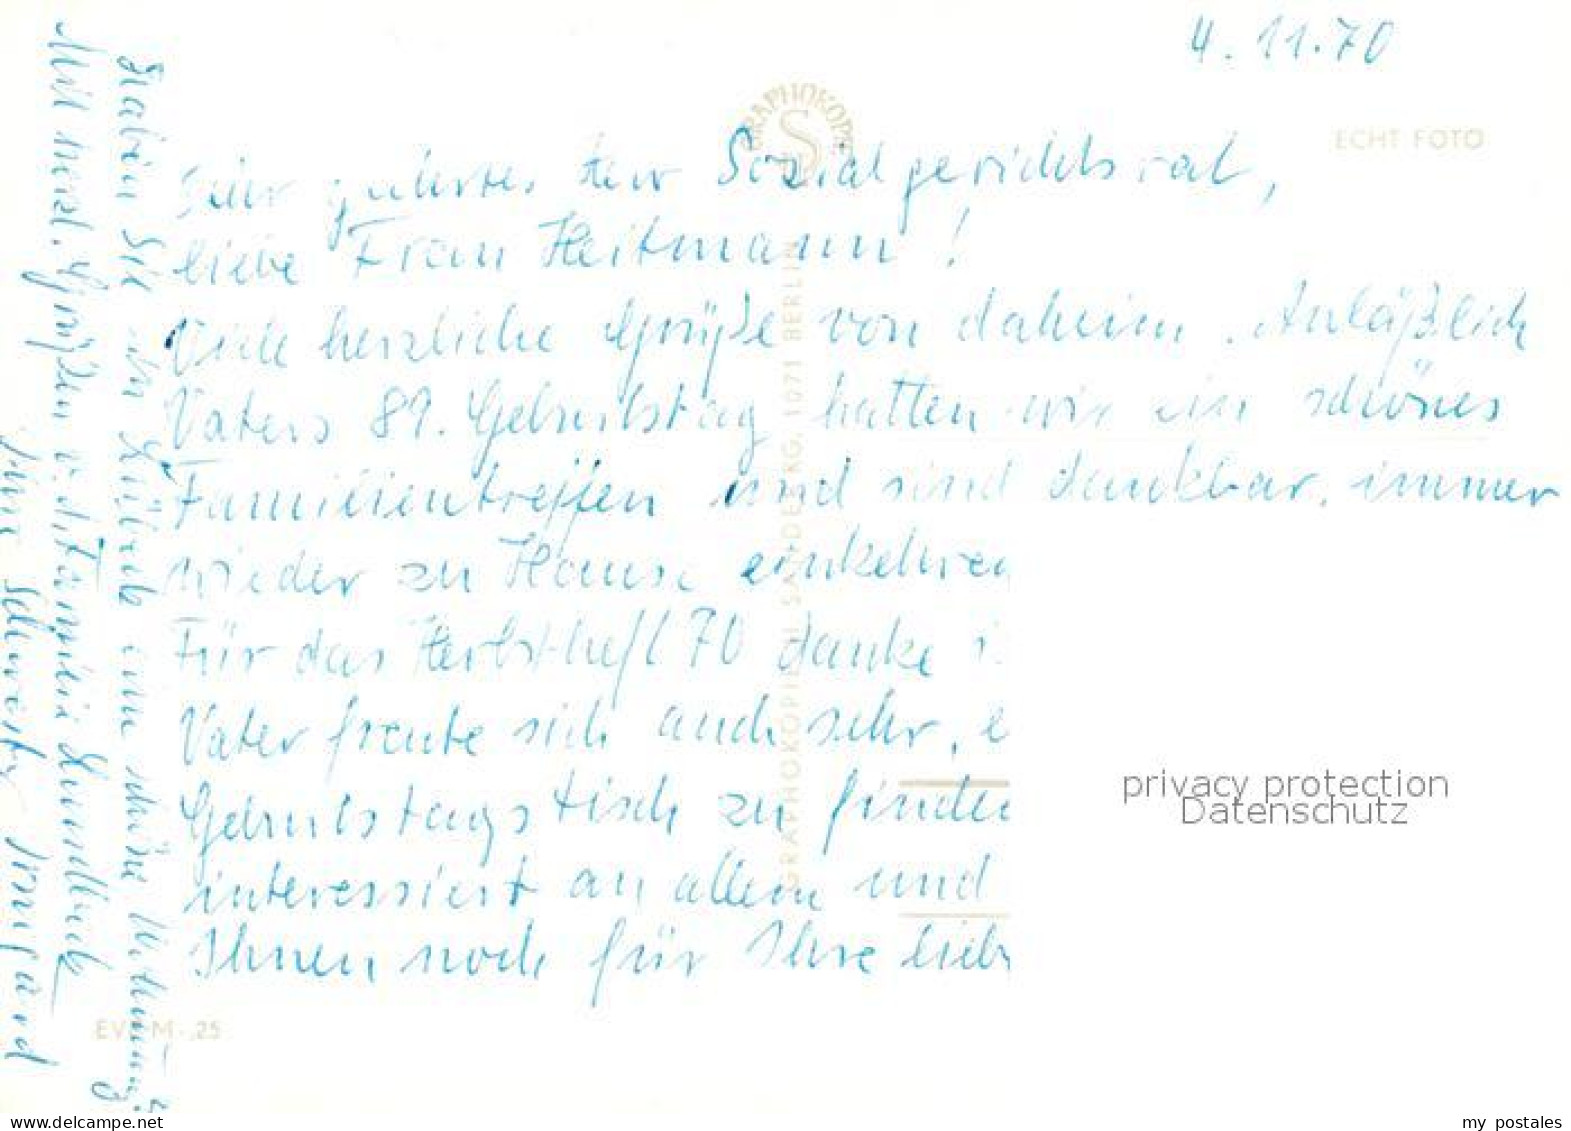 4.11.70
GRAPHOKOPIE
S
ECHT FOTO
Sehr geehrter Herr Sozialgerichtsrat,
liebe Frau Heitmann!
Viele herzliche Grüße von daheim. Anläßlich
Vaters 89. Geburtstag hatten wir ein schönes
Familientreffen und sind dankbar, immer
wieder zu Hause einkehren
Für das Herbstheft 70 danke i
Vater freute sich auch sehr, e
Geburtstagstisch zu finden
interessiert an allem und
Ihnen noch für Ihre lieb
Haben Sie in Lübeck eine schöne Wohnung?
Mit herzl. Grüßen v. d. Familie
Ihre Schwester Irmgard
GRAPHOKOPIE H. SANDER KG, 1071 BERLIN
EV M 25
privacy protection
Datenschutz
delcampe.net
my_postales